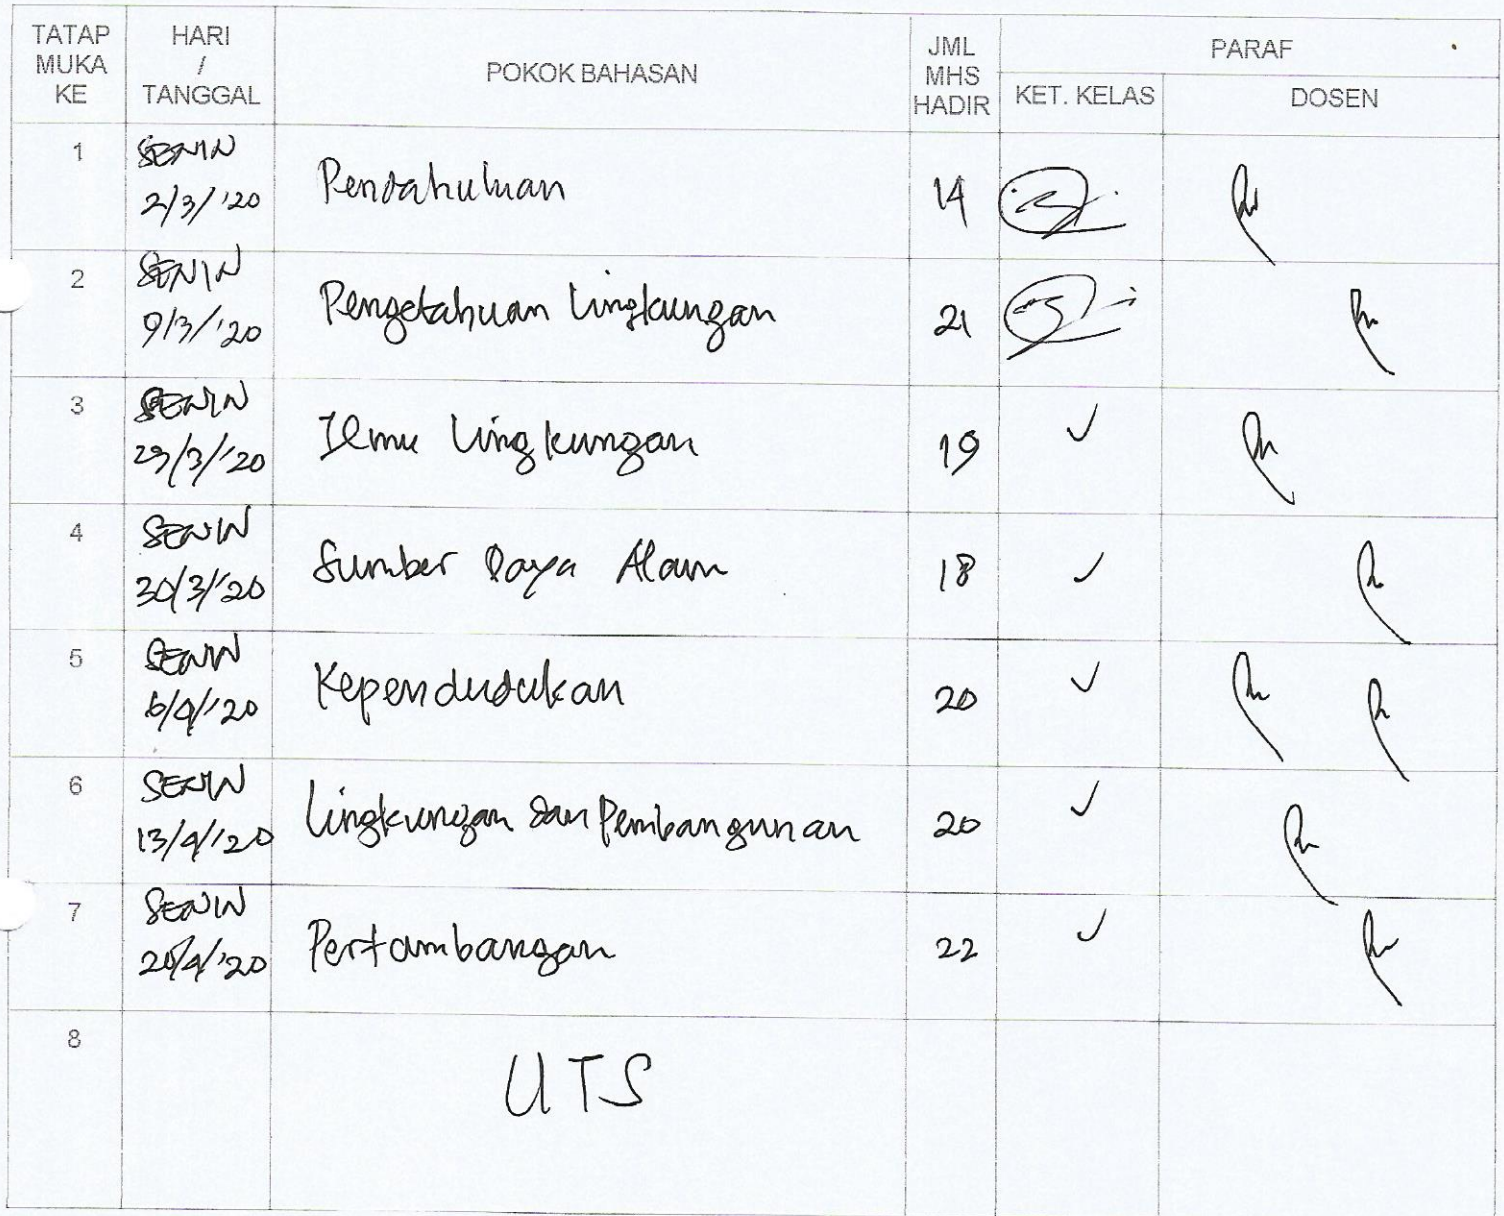 TATAP MUKA KE
HARI / TANGGAL
POKOK BAHASAN
JML MHS HADIR
PARAF
KET. KELAS
DOSEN
1
SENIN
2/3/'20
Pendahuluan
14
2
SENIN
9/3/'20
Pengetahuan Lingkungan
21
3
SENIN
/3/'20
Ilmu Lingkungan
19
4
SENIN
30/3/'20
Sumber Daya Alam
18
5
SENIN
6/4/'20
Kependudukan
20
6
SENIN
13/4/'20
Lingkungan dan Pembangunan
20
7
SENIN
20/4/'20
Pertambangan
22
8
UTS